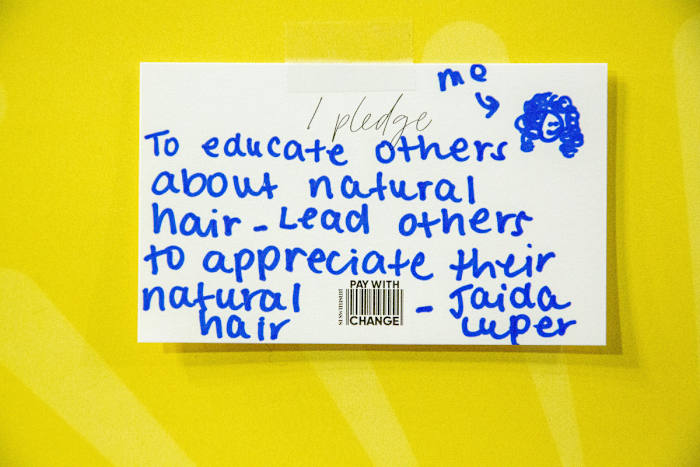 me
I pledge
To educate others
about natural
hair - Lead others
to appreciate their
natural
hair
PAY WITH
CHANGE
- Jaida
Luper